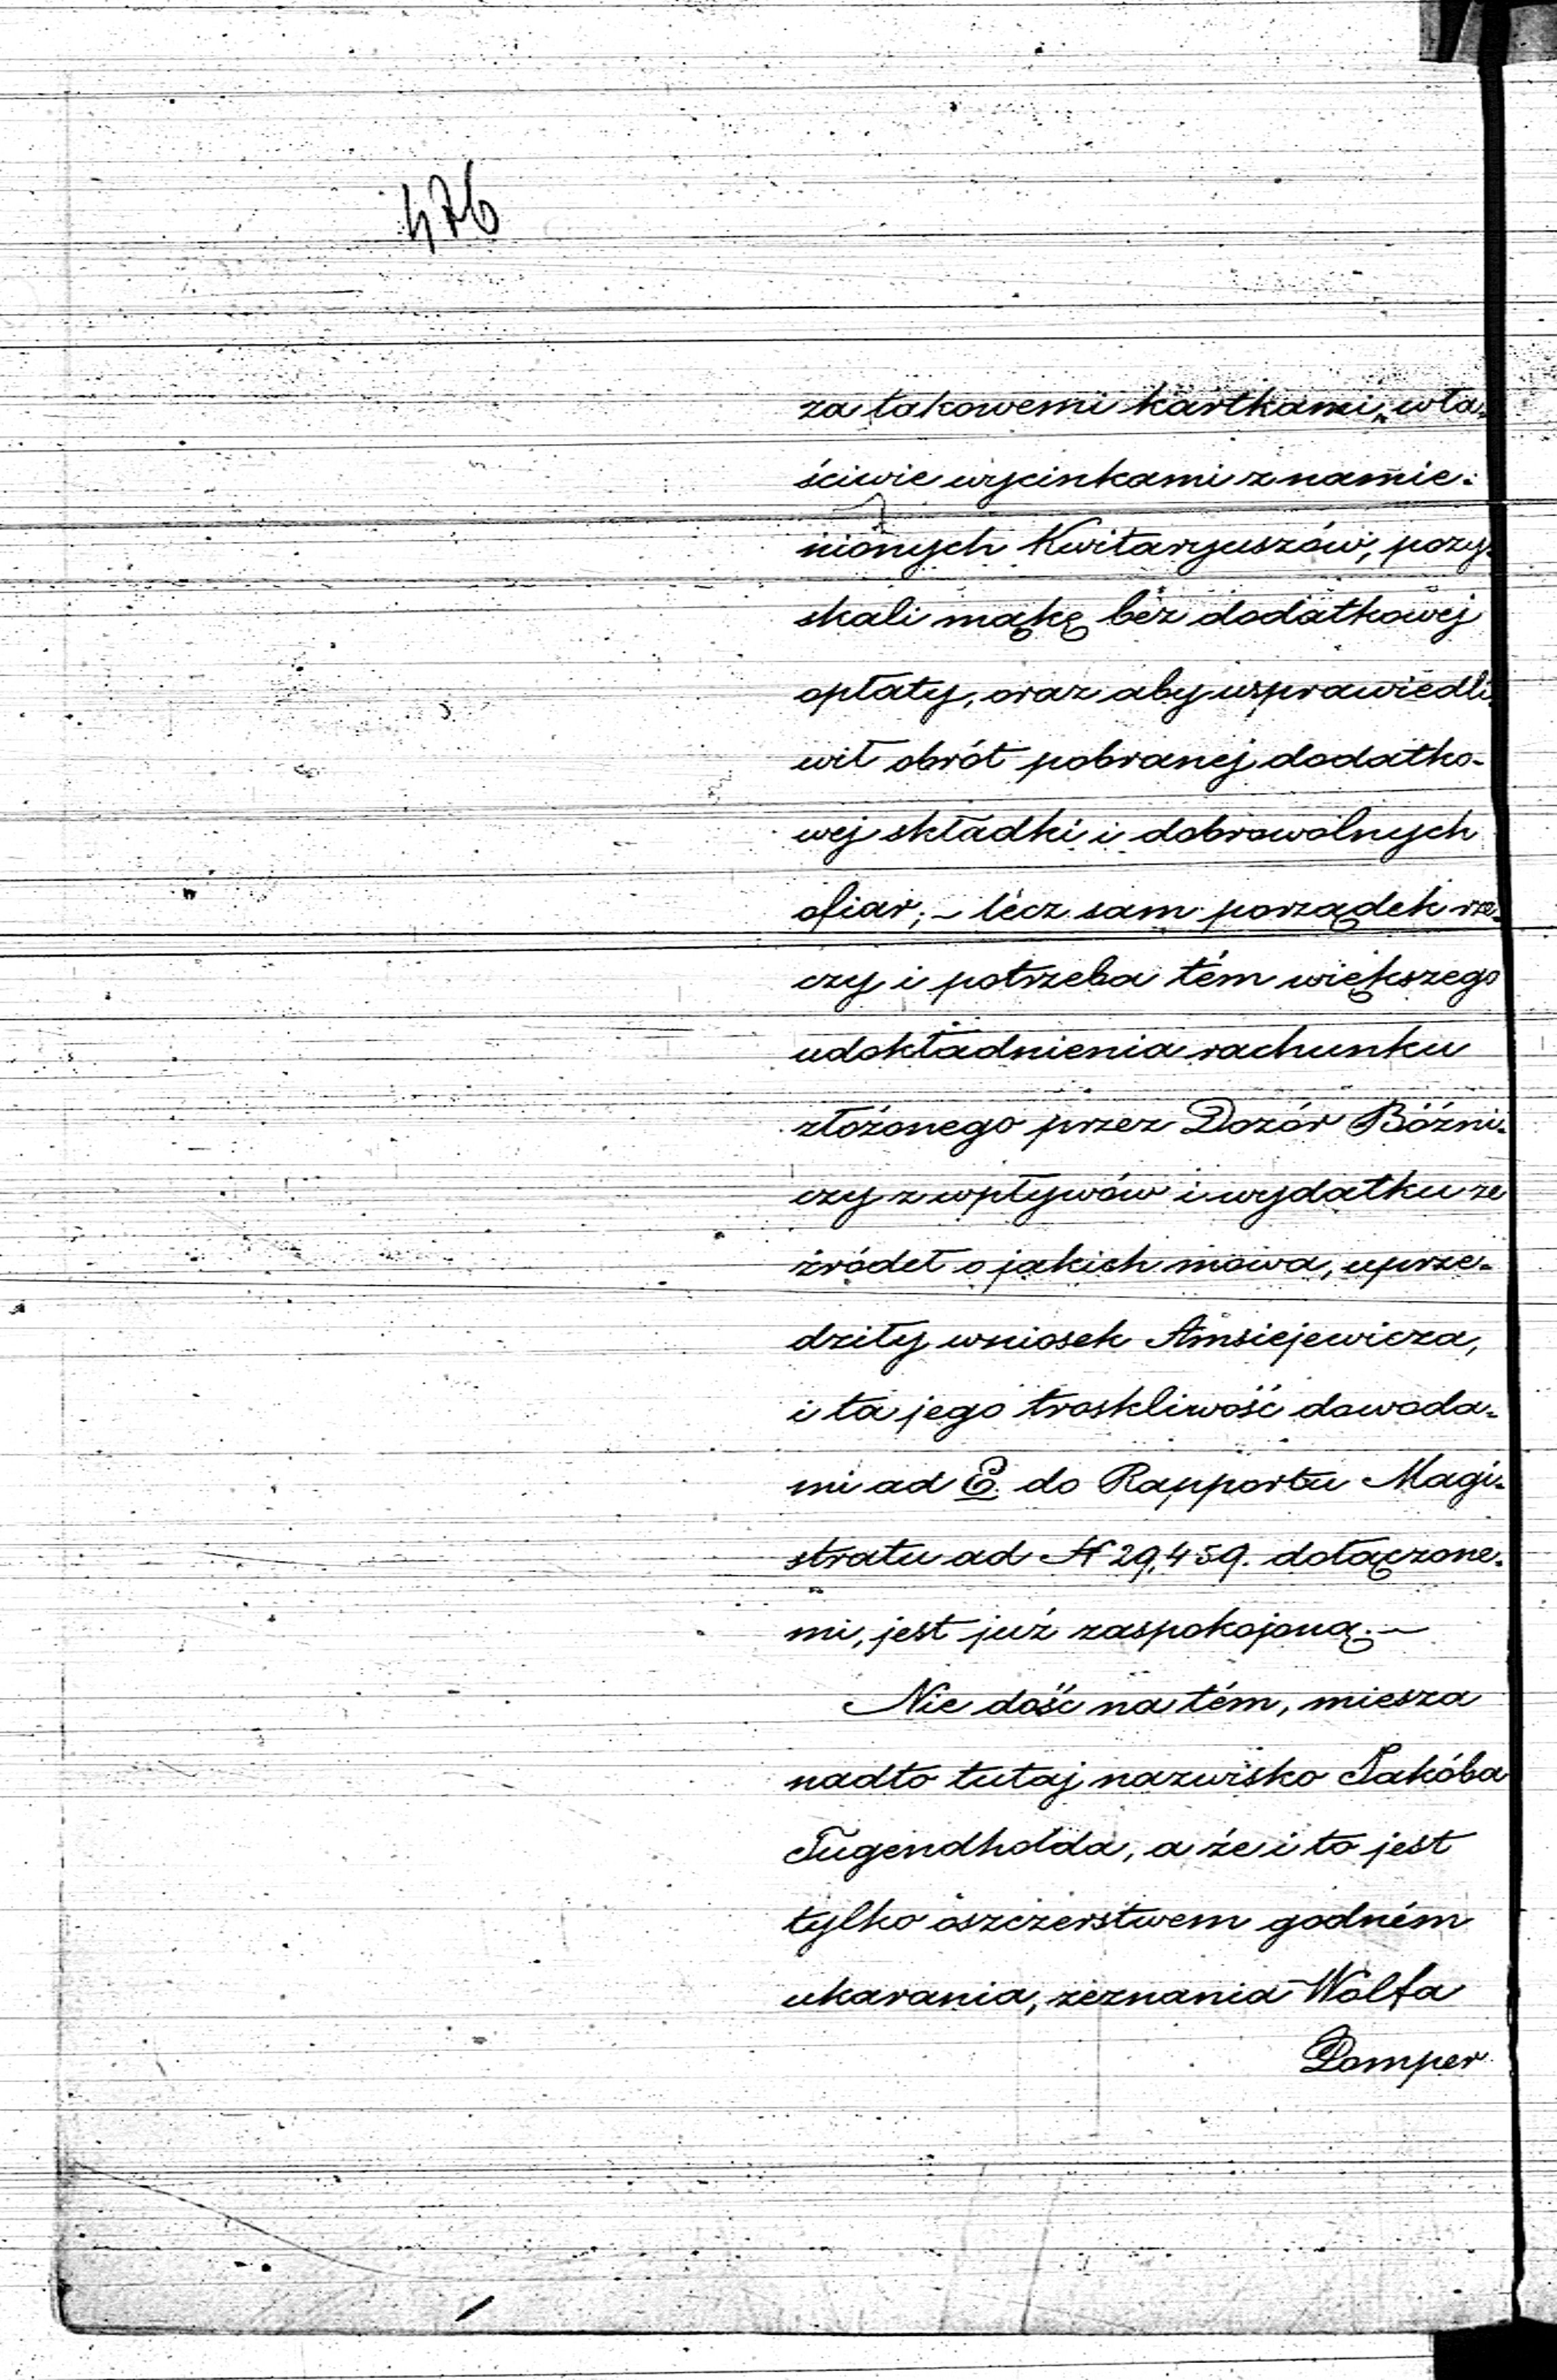 476
za takowemi kartkami, wła-
ściwie wycinkami z namie-
nionych Kwitaryuszów, pozy-
skali mąkę bez dodatkowej
opłaty, oraz aby usprawiedli-
wił obrót pobranej dodatko-
wej składki i dobrowolnych
ofiar; – lecz sam porządek rze-
czy i potrzeba tém większego
udokładnienia rachunku
złożonego przez Dozór Bóżni-
czy z wpływów i wydatku ze
źródeł o jakich mowa, uprze-
dziły wniosek Amsiejewicza,
i ta jego troskliwość dowoda-
mi ad E. do Rapportu Magi-
stratu ad N 29,459. dołączone-
mi, jest już zaspokojoną. –
Nie dość na tém, miesza
nadto tutaj nazwisko Jakóba
Tugendholda, a że i to jest
tylko oszczerstwem godném
ukarania, zeznania Wolfa
Domper